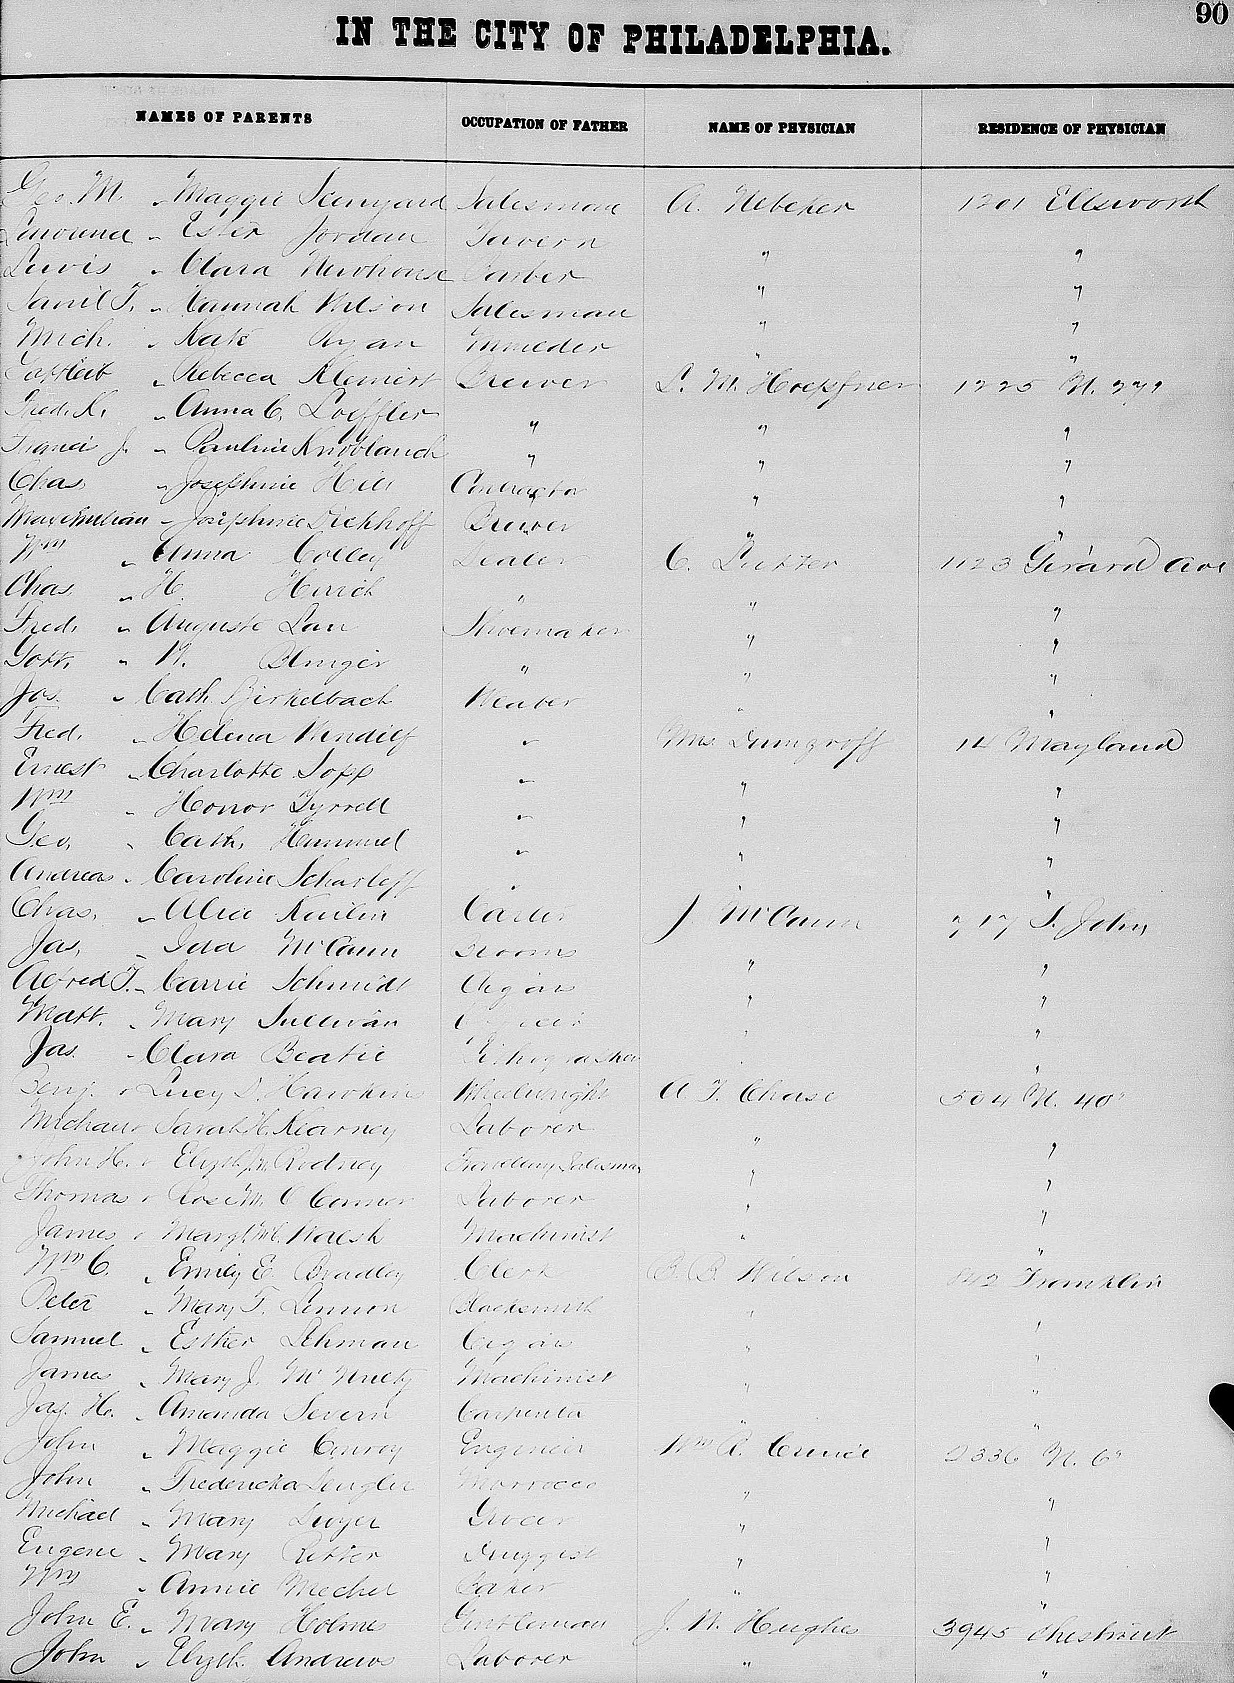 90
IN THE CITY OF PHILADELPHIA.
NAMES OF PARENTS OCCUPATION OF FATHER NAME OF PHYSICIAN RESIDENCE OF PHYSICIAN
Geo. M. " Maggie Salesman A. Nebeker 1201 Ellsworth
" Ester Jordan Tavern " "
Lewis " Clara Newhouse Barber " "
" Hannah Wilson Salesman " "
Mich. " Kate Ryan " "
" Rebecca Klemert Brewer L. M. Hoepfner 1225 N.
Fred. K. " Anna C. Loeffler " " "
" Pauline Knoblauch " " "
Chas. " Josephine Hill Contractor " "
Maximilian " Josephine Brewer " "
Wm " Anna Colley Dealer C. 1123 Girard Ave
Chas. " H. " " "
Fred. " Auguste Lau Shoemaker " "
Gott. " W. " " "
Jos. " Cath. Birkelbach Weaver " "
Fred. " Helena " Mrs. 14 Mayland
Ernest " Charlotte Sopp " " "
Wm " Honor Tyrrell " " "
Geo. " Cath. Hummel " " "
Andreas " Caroline " " "
Chas. " Alice Carter J McCann 717 S. John
Jas. " Ida McCann Brooms " "
Alfred T. " Carrie Schmidt Cigars " "
Matt. " Mary Sullivan " "
Jas. " Clara Beatie Lithographer " "
Benj. " Lucy D. Hawkins Wheelwright A. T. Chase 504 N. 40"
" Sarah H. Kearney Laborer " "
John H. " Elizth M. Rodney Travelling Salesman " "
Thomas " Rose M. O'Connor Laborer " "
James " Walsh Machinist " "
Wm C. " Emily E. Bradley Clerk B. B. Wilson Franklin
Peter " Mary F. Lennon Blacksmith " "
Samuel " Esther Lehman Cigars " "
James " Mary J. Machinist " "
Jas. H. " Amanda Severn Carpenter " "
John " Maggie Conroy Engineer Wm 2336 N. 6"
John " Fredericka Morrocco " "
Michael " Mary Dwyer Grocer " "
Eugene " Mary Ritter Druggist " "
Wm " Annie Baker " "
John E. " Mary Holmes Gentleman J. W. Hughes 3945 Chestnut
John " Elizth. Andrews Laborer " "